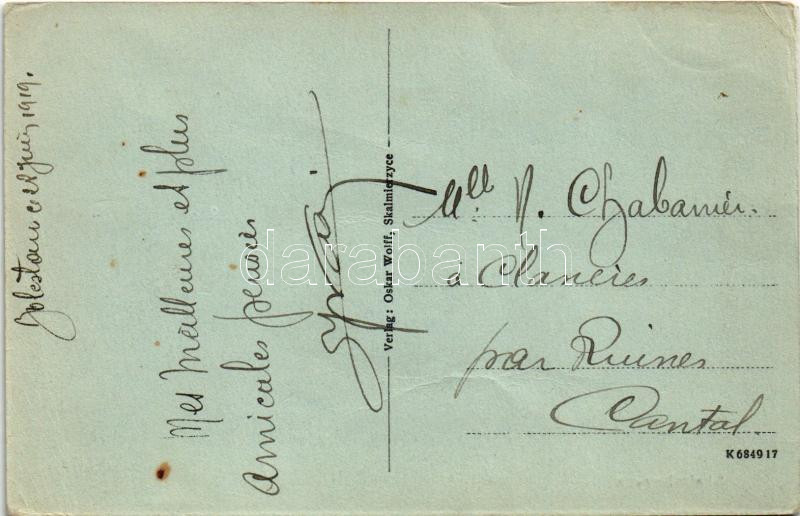 ce 28 Juin 1919.
Mes meilleures et plus
Amicales pensées
Verlag: Oskar Wolff, Skalmierzyce
Mlle V. Chabanier.
à Clavières
par Ruines
Cantal.
K 68491 7
darabanth